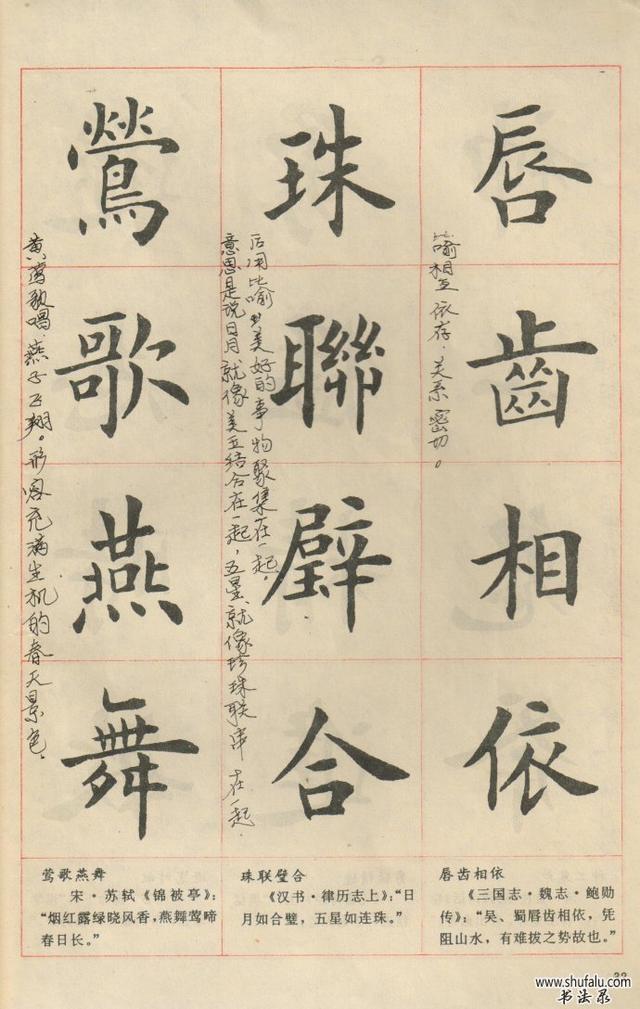 唇齒相依
比喻相互依存，关系密切。
珠聯璧合
意思是说日月就像美玉结合在一起，五星就像珍珠联串在一起．
后用比喻美好的事物聚集在一起，
鶯歌燕舞
黄莺歌唱，燕子飞翔。形容充满生机的春天景色．
唇齿相依
《三国志·魏志·鲍勋
传》：“吴、蜀唇齿相依，凭
阻山水，有难拔之势故也。”
珠联璧合
《汉书·律历志上》：“日
月如合璧，五星如连珠。”
莺歌燕舞
宋·苏轼《锦被亭》：
“烟红露绿晓风香，燕舞莺啼
春日长。”
www.shufalu.com
书法录